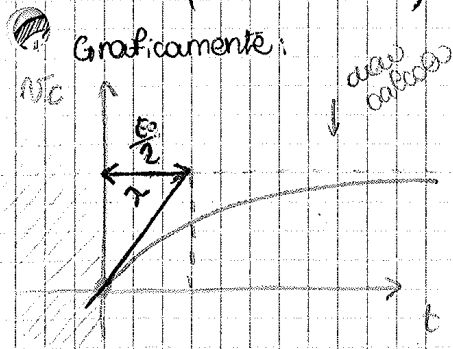 Graficamente:
Vc
E0/2
τ
t